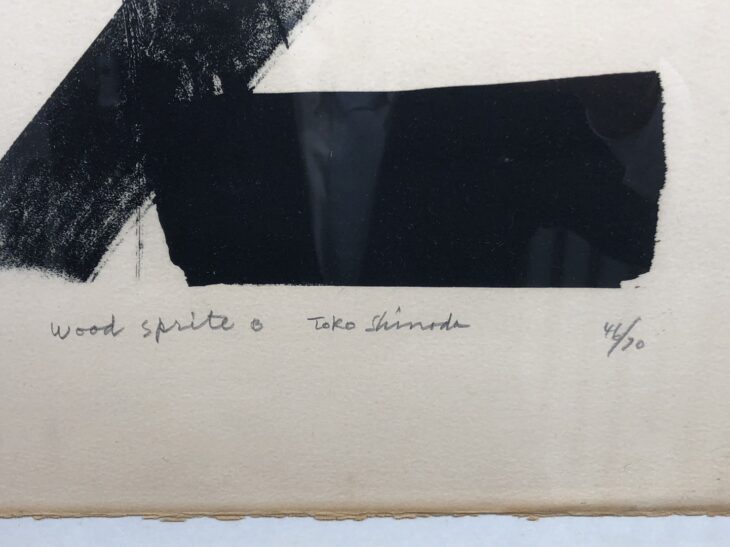 Wood Sprite B Toko Shinoda 46/70